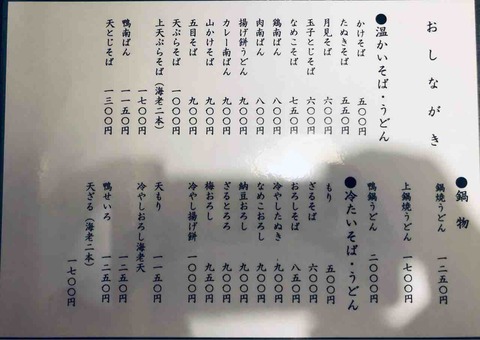 おしながき
●温かいそば・うどん
かけそば 五〇〇円
たぬきそば 五五〇円
月見そば 六〇〇円
玉子とじそば 六〇〇円
なめこそば 七五〇円
鶏南ばん 八〇〇円
肉南ばん 八〇〇円
揚げ餅うどん 九〇〇円
カレー南ばん 九〇〇円
山かけそば 九〇〇円
五目そば 九〇〇円
天ぷらそば 一〇〇〇円
上天ぷらそば(海老二本) 一七〇〇円
鴨南ばん 一一五〇円
天とじそば 一三〇〇円
●鍋物
鍋焼うどん 一二五〇円
上鍋焼うどん 一七〇〇円
鴨鍋うどん 二〇〇〇円
●冷たいそば・うどん
もり 五〇〇円
ざるそば 六〇〇円
おろしそば 八五〇円
冷やしたぬき 九〇〇円
なめこおろし 九五〇円
納豆おろし 九〇〇円
ざるとろろ 九〇〇円
梅おろし 九五〇円
冷やし揚げ餅 一〇〇〇円
天もり 一一五〇円
冷やしおろし海老天 一二五〇円
鴨せいろ 一二五〇円
天ざる(海老二本) 一七〇〇円